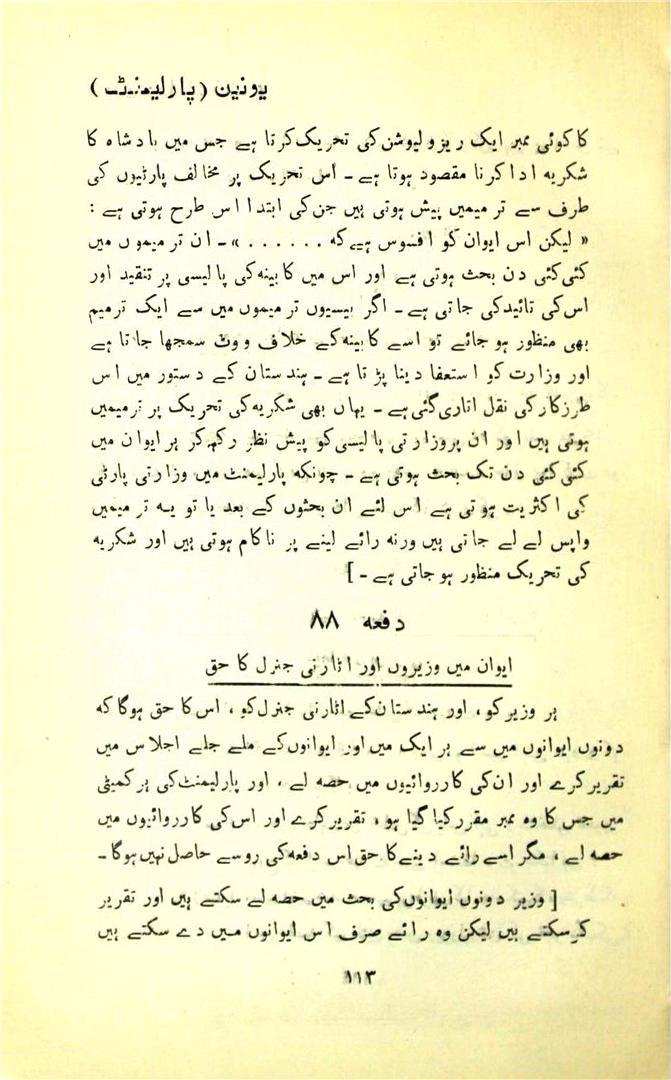 یونین (پارلیمنٹ)
کا کوئی ممبر ایک ریزولیوشن کی تحریک کرتا ہے جس میں بادشاہ کا
شکریہ ادا کرنا مقصود ہوتا ہے ۔ اس تحریک پر مخالف پارٹیوں کی
طرف سے ترمیمیں پیش ہوتی ہیں جن کی ابتدا اس طرح ہوتی ہے :
« لیکن اس ایوان کو افسوس ہے کہ . . . . . . » ۔ ان ترمیموں میں
کئی کئی دن بحث ہوتی ہے اور اس میں کابینہ کی پالیسی پر تنقید اور
اس کی تائید کی جاتی ہے ۔ اگر بیسیوں ترمیموں میں سے ایک ترمیم
بھی منظور ہو جائے تو اسے کابینہ کے خلاف ووٹ سمجھا جاتا ہے
اور وزارت کو استعفا دینا پڑتا ہے ۔ ہندستان کے دستور میں اس
طرز کار کی نقل اتاری گئی ہے ۔ یہاں بھی شکریہ کی تحریک پر ترمیمیں
ہوتی ہیں اور ان پر وزارتی پالیسی کو پیش نظر رکھ کر ہر ایوان میں
کئی کئی دن تک بحث ہوتی ہے ۔ چونکہ پارلیمنٹ میں وزارتی پارٹی
کی اکثریت ہوتی ہے اس لئے ان بحثوں کے بعد یا تو یہ ترمیمیں
واپس لے لے جاتی ہیں ورنہ رائے لینے پر ناکام ہوتی ہیں اور شکریہ
کی تحریک منظور ہو جاتی ہے ۔ ]
دفعہ ۸۸
ایوان میں وزیروں اور اٹارنی جنرل کا حق
ہر وزیر کو ، اور ہندستان کے اٹارنی جنرل کو ، اس کا حق ہوگا کہ
دونوں ایوانوں میں سے ہر ایک میں اور ایوانوں کے ملے جلے اجلاس میں
تقریر کرے اور ان کی کارروائیوں میں حصہ لے ، اور پارلیمنٹ کی ہر کمیٹی
میں جس کا وہ ممبر مقرر کیا گیا ہو ، تقریر کرے اور اس کی کارروائیوں میں
حصہ لے ، مگر اسے رائے دینے کا حق اس دفعہ کی رو سے حاصل نہیں ہوگا ۔
[ وزیر دونوں ایوانوں کی بحث میں حصہ لے سکتے ہیں اور تقریر
کرسکتے ہیں لیکن وہ رائے صرف اس ایوانوں میں دے سکتے ہیں
۱۱۳